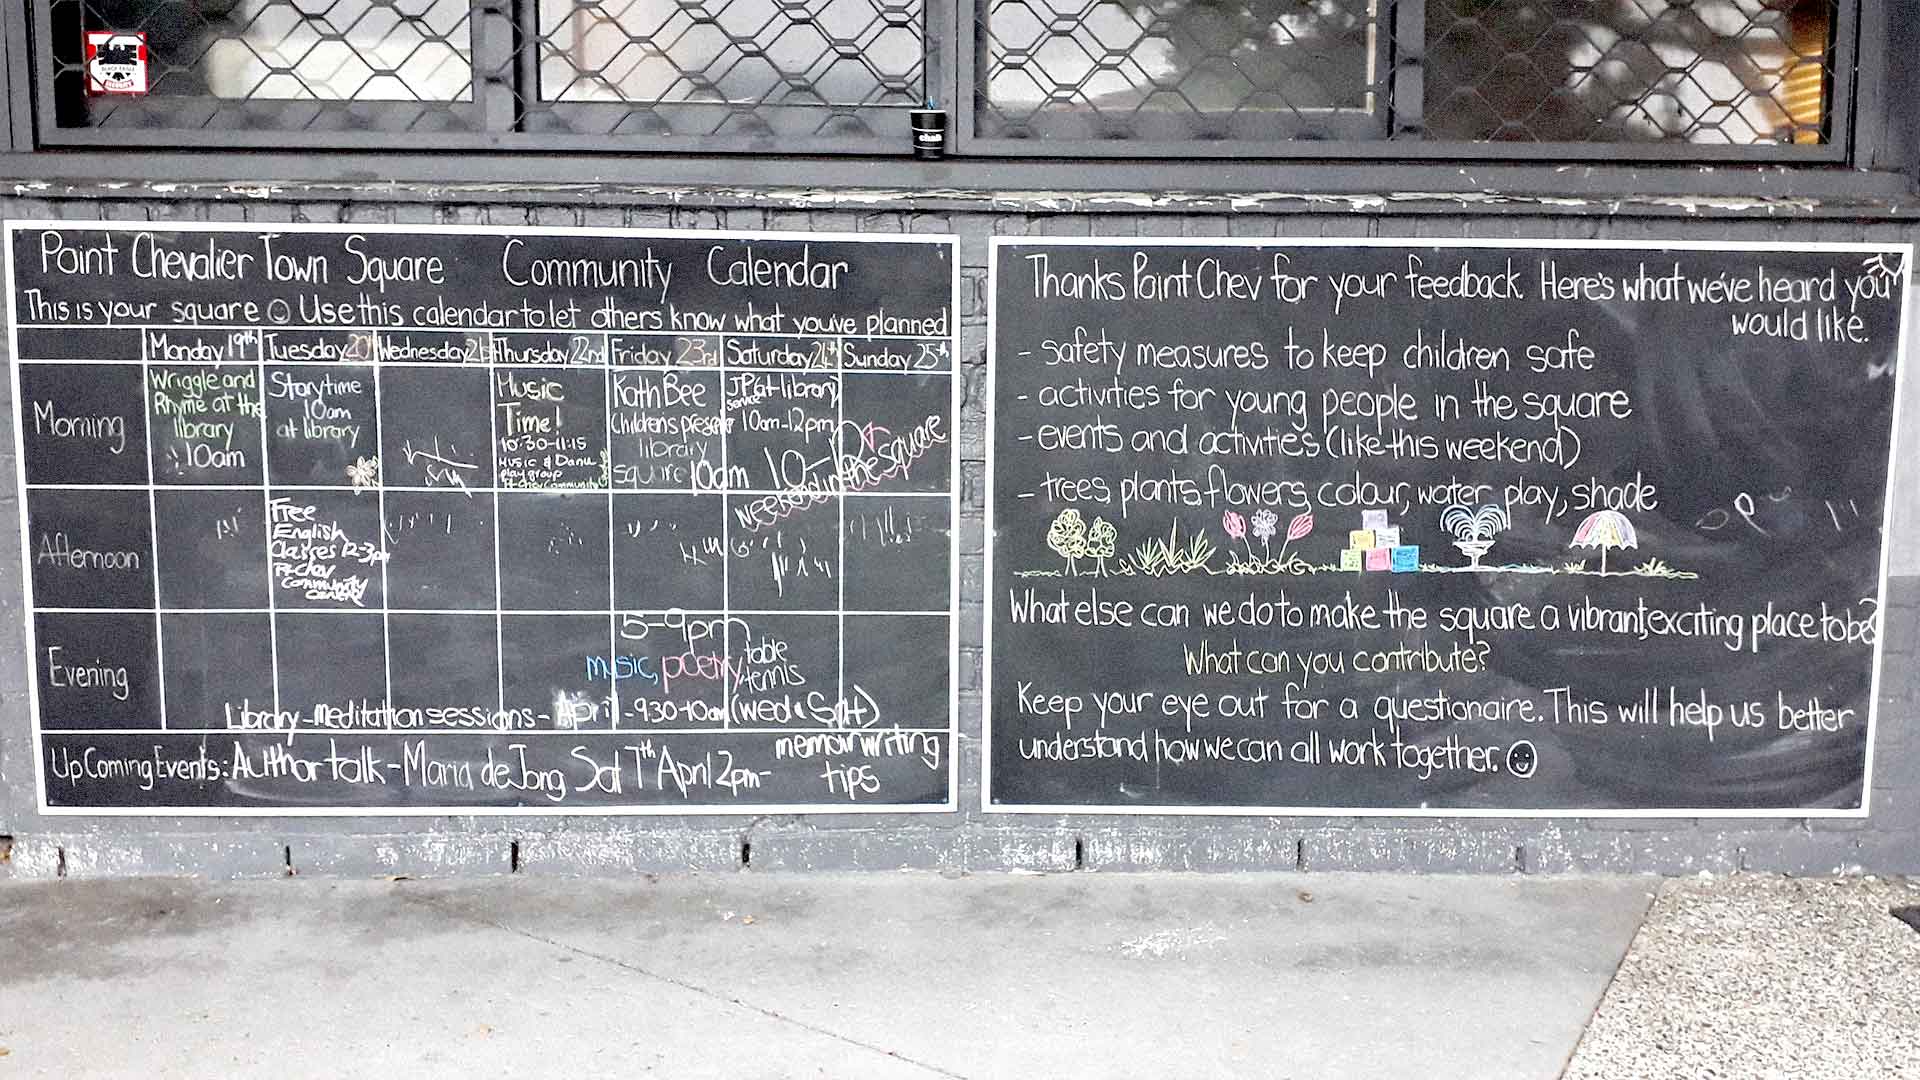 Point Chevalier Town Square Community Calendar
This is your square Use this calendar to let others know what you've planned
Monday 19th Tuesday 20th Wednesday 21st Thursday 22nd Friday 23rd Saturday 24th Sunday 25th
Morning
Wriggle and
Rhyme at the
library
10am
Storytime
10am
at library
Music
Time!
10:30-11:15
Music & Dance
playgroup
Pt Chev Community
Kath Bee
Childrens
library
square 10am
JP at library
service
10am-12pm
weekend in the square
Afternoon
Free
English
Classes 12-3pm
Pt Chev
Community
Centre
Evening
5-9pm
music, poetry, table
tennis
Library-meditation sessions- April -9:30-10am (wed & Sat)
Up Coming Events: Author talk - Maria de Jong Sat 7th April 2pm-
memoir writing
tips
Thanks Point Chev for your feedback. Here's what we've heard you
would like.
- safety measures to keep children safe
- activities for young people in the square
- events and activities (like this weekend)
- trees, plants, flowers, colour, water, play, shade
What else can we do to make the square a vibrant, exciting place to be?
What can you contribute?
Keep your eye out for a questionaire. This will help us better
understand how we can all work together.